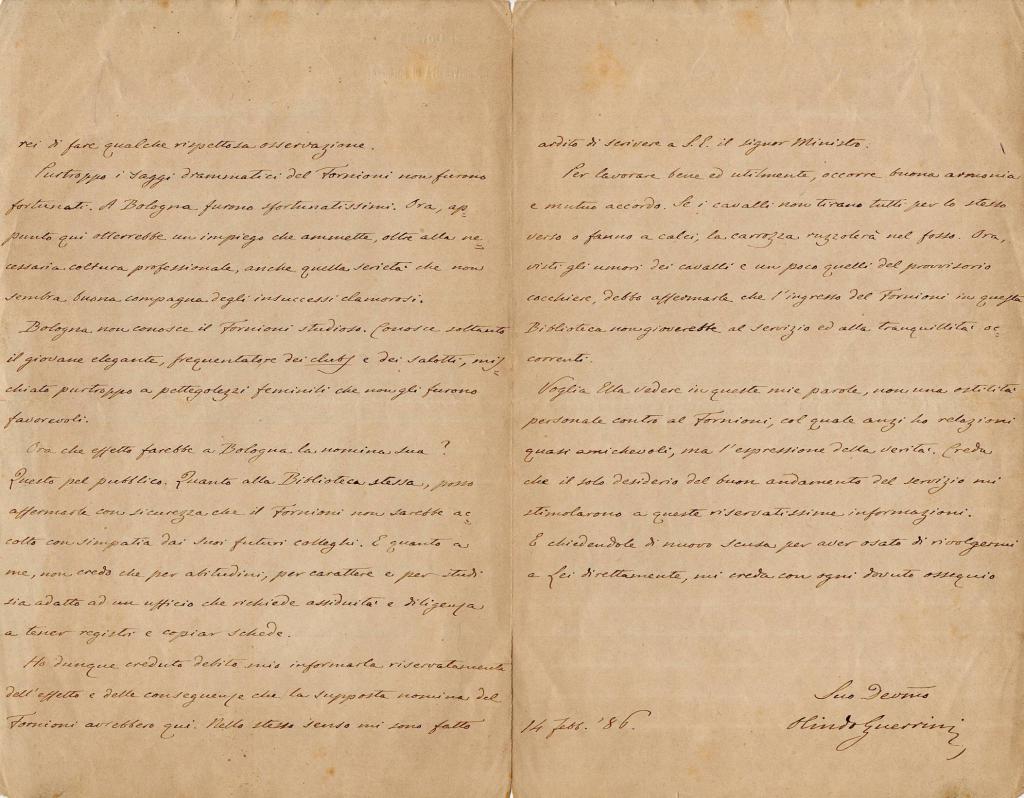 rei di fare qualche rispettosa osservazione.
Purtroppo i saggi drammatici del Fornioni non furono
fortunati. A Bologna furono sfortunatissimi. Ora, ap=
punto qui otterrebbe un impiego che ammette, oltre alla ne=
cessaria coltura professionale, anche quella serietà che non
sembra buona compagna degli insuccessi clamorosi.
Bologna non conosce il Fornioni studioso. Conosce soltanto
il giovane elegante, frequentatore dei clubs e dei salotti, mis=
chiato purtroppo a pettegolezzi feminili che non gli furono
favorevoli.
Ora che effetto farebbe a Bologna la nomina sua?
Questo pel pubblico. Quanto alla Biblioteca stessa, posso
affermarle con sicurezza che il Fornioni non sarebbe ac=
colto con simpatia dai suoi futuri colleghi. E quanto a
me, non credo che per abitudini, per carattere e per studi
sia adatto ad un ufficio che richiede assiduità e diligenza
a tener registri e copiar schede.
Ho dunque creduto debito mio informarla riservatamente
dell'effetto e delle conseguenze che la supposta nomina del
Fornioni avrebbero qui. Nello stesso senso mi sono fatto
ardito di scrivere a S.E. il signor Ministro.
Per lavorare bene ed utilmente, occorre buona armonia
e mutuo accordo. Se i cavalli non tirano tutti per lo stesso
verso o fanno a calci, la carrozza ruzzolerà nel fosso. Ora,
visti gli umori dei cavalli e un poco quelli del provvisorio
cocchiere, debbo affermarle che l'ingresso del Fornioni in questa
Biblioteca non gioverebbe al servizio ed alla tranquillità oc=
correnti.
Voglia Ella vedere in queste mie parole, non una ostilità
personale contro al Fornioni, col quale anzi ho relazioni
quasi amichevoli, ma l'espressione della verità. Creda
che il solo desiderio del buon andamento del servizio mi
stimolarono a queste riservatissime informazioni.
E chiedendole di nuovo scusa per aver osato di rivolgermi
a Lei direttamente, mi creda con ogni dovuto ossequio
Suo Devmo
14 Febb. '86.
Olindo Guerrini